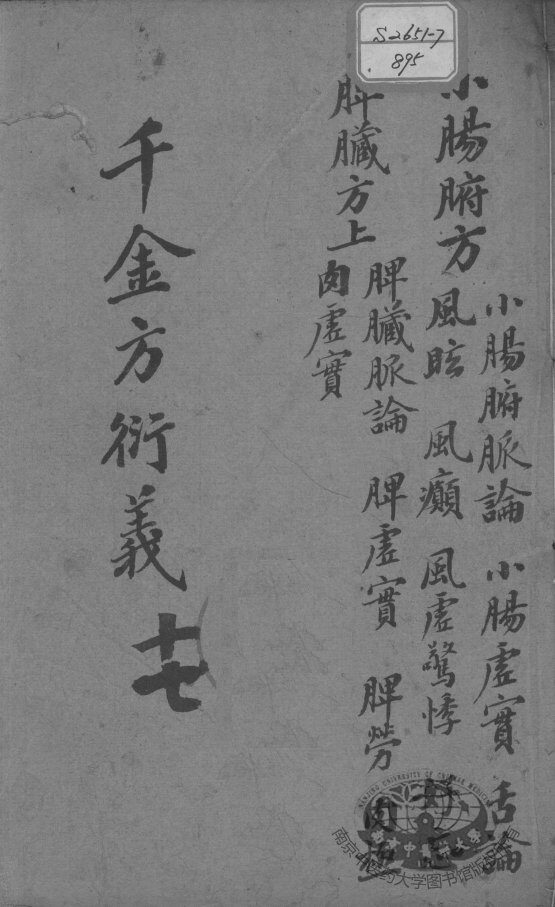 S-2651-7
895
小腸腑方
小腸腑脈論 小腸虛實 舌論
風眩 風癲 風虛驚悸
脾臟方上
脾臟脈論 脾虛實 脾勞 肉極
肉虛實
千金方衍義 十七
NANJING UNIVERSITY OF CHINESE MEDICINE
南京中医药大学图书馆版权所有